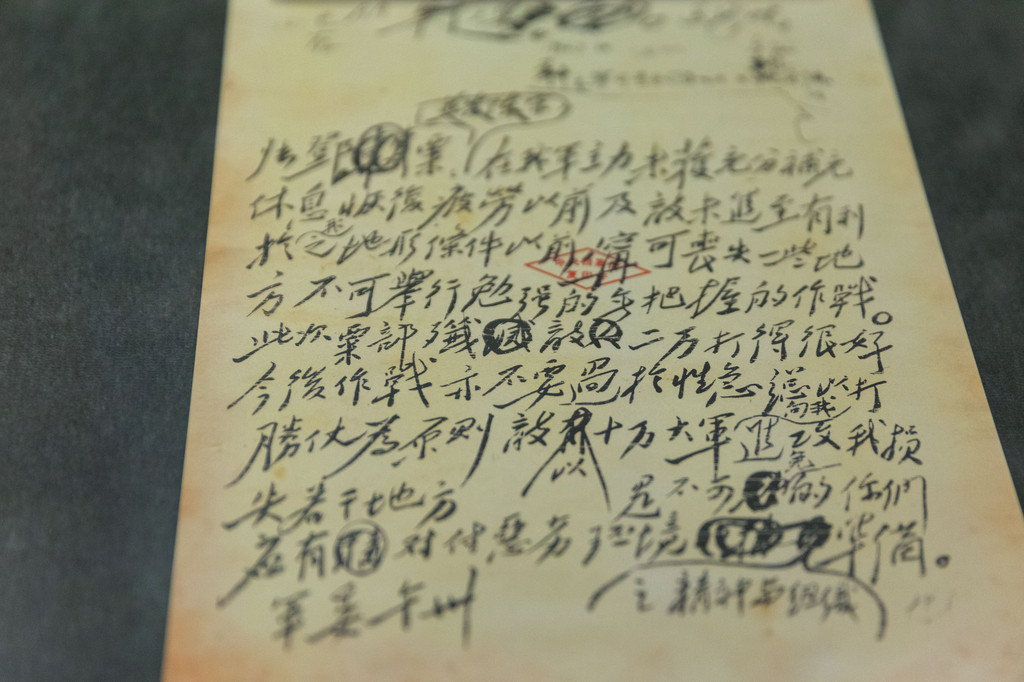 张邓 粟,在我军主力未获充分補充
休息恢復疲劳以前及敌未進至有利
於我之地形條件以前,寧可喪失一些地
方不可舉行勉强的無把握的作戰。
此次粟部殲敌二万打得很好
今後作戰亦不要過於性急总以打
勝仗為原則敌以十万大軍進攻我損
失若干地方是不可免的你們
应有对付惡劣环境之精神与組織準備。
軍委午卅